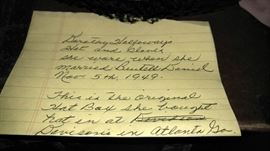 Dorothy Holloways
Hat and Gloves
she wore when she
married Burtell Daniel
Nov 5th, 1949.
This is the original
Hat Box she bought
hat in at Davidson
Divisons in Atlanta Ga